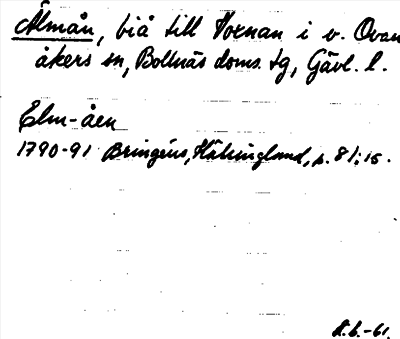 Älmån, biå till Voxnan i v. Ovan
åkers sn, Bollnäs doms. tg, Gävl. l.
Elm-åen
1790-91 Bringéus, Hälsingland, s. 81; 15.
R.b.-61.